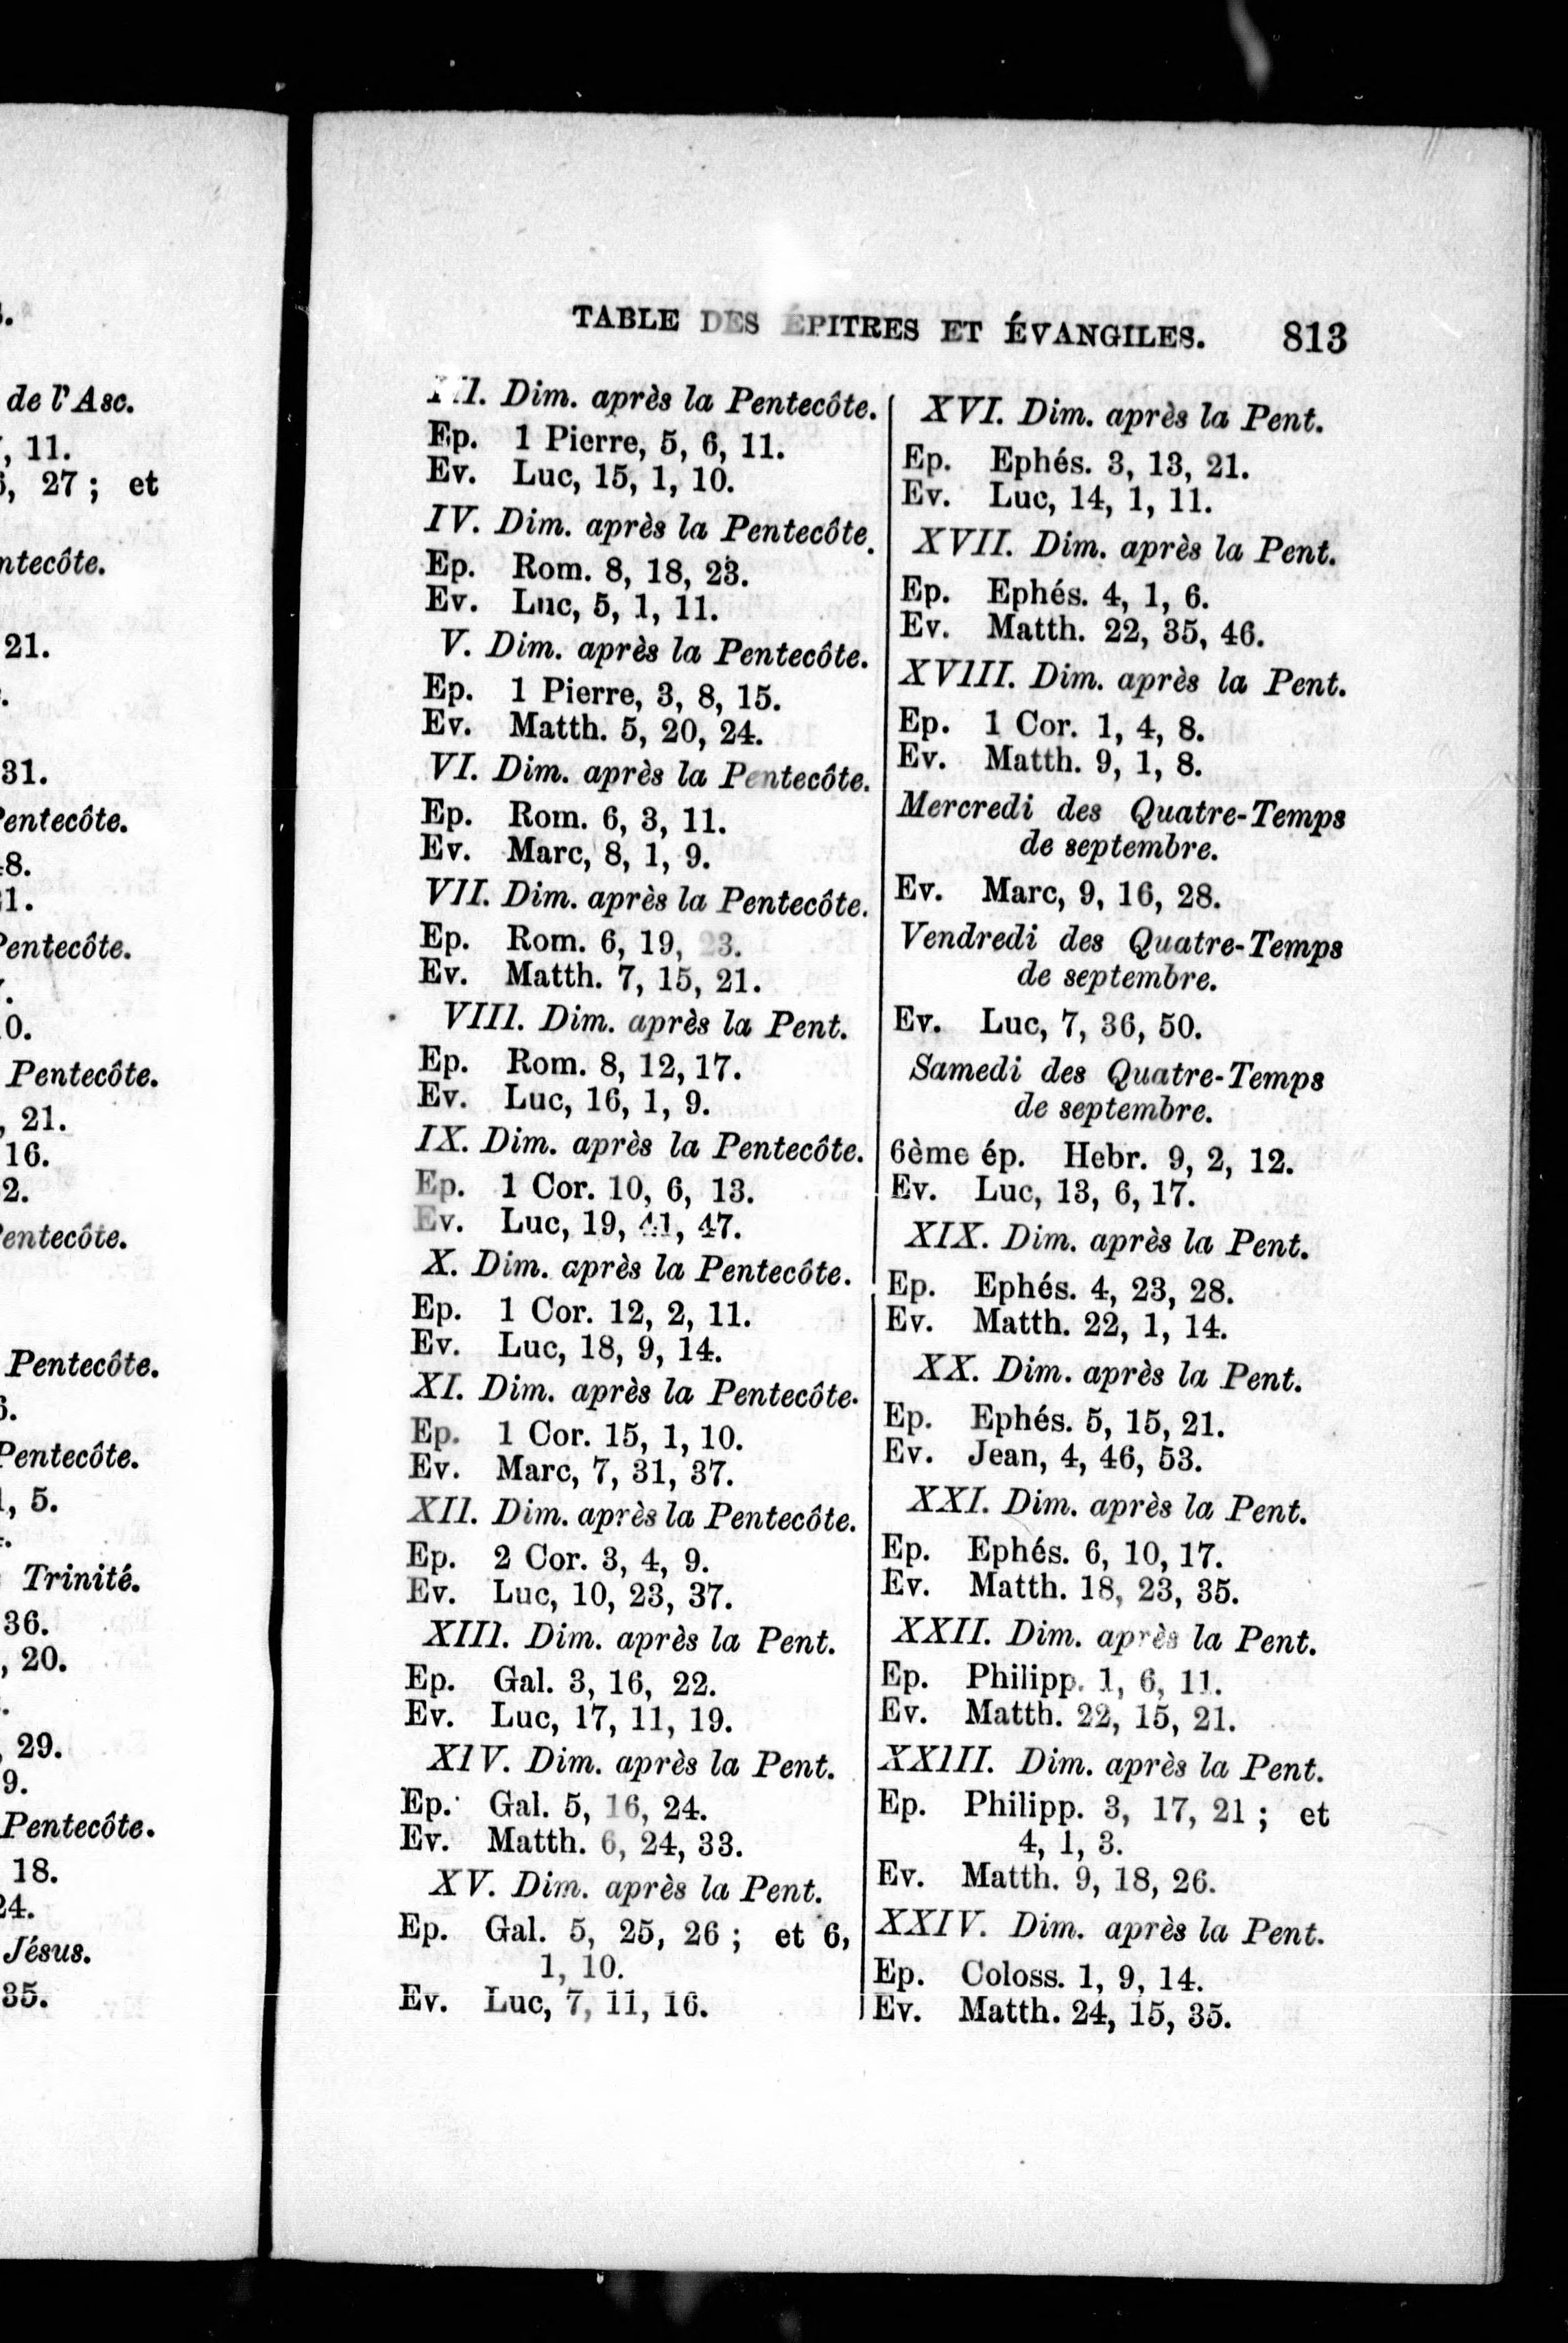 de l'Asc.
, 11.
, 27 ; et
ntecôte.
21.
31.
entecôte.
8.
1.
Pentecôte.
0.
Pentecôte.
, 21.
16.
2.
entecôte.
Pentecôte.
Pentecôte.
, 5.
Trinité.
36.
, 20.
, 29.
9.
Pentecôte.
18.
24.
Jésus.
35.
TABLE DES ÉPITRES ET ÉVANGILES. 813
III. Dim. après la Pentecôte.
Ep. 1 Pierre, 5, 6, 11.
Ev. Luc, 15, 1, 10.
IV. Dim. après la Pentecôte.
Ep. Rom. 8, 18, 23.
Ev. Luc, 5, 1, 11.
V. Dim. après la Pentecôte.
Ep. 1 Pierre, 3, 8, 15.
Ev. Matth. 5, 20, 24.
VI. Dim. après la Pentecôte.
Ep. Rom. 6, 3, 11.
Ev. Marc, 8, 1, 9.
VII. Dim. après la Pentecôte.
Ep. Rom. 6, 19, 23.
Ev. Matth. 7, 15, 21.
VIII. Dim. après la Pent.
Ep. Rom. 8, 12, 17.
Ev. Luc, 16, 1, 9.
IX. Dim. après la Pentecôte.
Ep. 1 Cor. 10, 6, 13.
Ev. Luc, 19, 41, 47.
X. Dim. après la Pentecôte.
Ep. 1 Cor. 12, 2, 11.
Ev. Luc, 18, 9, 14.
XI. Dim. après la Pentecôte.
Ep. 1 Cor. 15, 1, 10.
Ev. Marc, 7, 31, 37.
XII. Dim. après la Pentecôte.
Ep. 2 Cor. 3, 4, 9.
Ev. Luc, 10, 23, 37.
XIII. Dim. après la Pent.
Ep. Gal. 3, 16, 22.
Ev. Luc, 17, 11, 19.
XIV. Dim. après la Pent.
Ep. Gal. 5, 16, 24.
Ev. Matth. 6, 24, 33.
XV. Dim. après la Pent.
Ep. Gal. 5, 25, 26 ; et 6,
1, 10.
Ev. Luc, 7, 11, 16.
XVI. Dim. après la Pent.
Ep. Ephés. 3, 13, 21.
Ev. Luc, 14, 1, 11.
XVII. Dim. après la Pent.
Ep. Ephés. 4, 1, 6.
Ev. Matth. 22, 35, 46.
XVIII. Dim. après la Pent.
Ep. 1 Cor. 1, 4, 8.
Ev. Matth. 9, 1, 8.
Mercredi des Quatre-Temps
de septembre.
Ev. Marc, 9, 16, 28.
Vendredi des Quatre-Temps
de septembre.
Ev. Luc, 7, 36, 50.
Samedi des Quatre-Temps
de septembre.
6ème ép. Hebr. 9, 2, 12.
Ev. Luc, 13, 6, 17.
XIX. Dim. après la Pent.
Ep. Ephés. 4, 23, 28.
Ev. Matth. 22, 1, 14.
XX. Dim. après la Pent.
Ep. Ephés. 5, 15, 21.
Ev. Jean, 4, 46, 53.
XXI. Dim. après la Pent.
Ep. Ephés. 6, 10, 17.
Ev. Matth. 18, 23, 35.
XXII. Dim. après la Pent.
Ep. Philipp. 1, 6, 11.
Ev. Matth. 22, 15, 21.
XXIII. Dim. après la Pent.
Ep. Philipp. 3, 17, 21 ; et
4, 1, 3.
Ev. Matth. 9, 18, 26.
XXIV. Dim. après la Pent.
Ep. Coloss. 1, 9, 14.
Ev. Matth. 24, 15, 35.